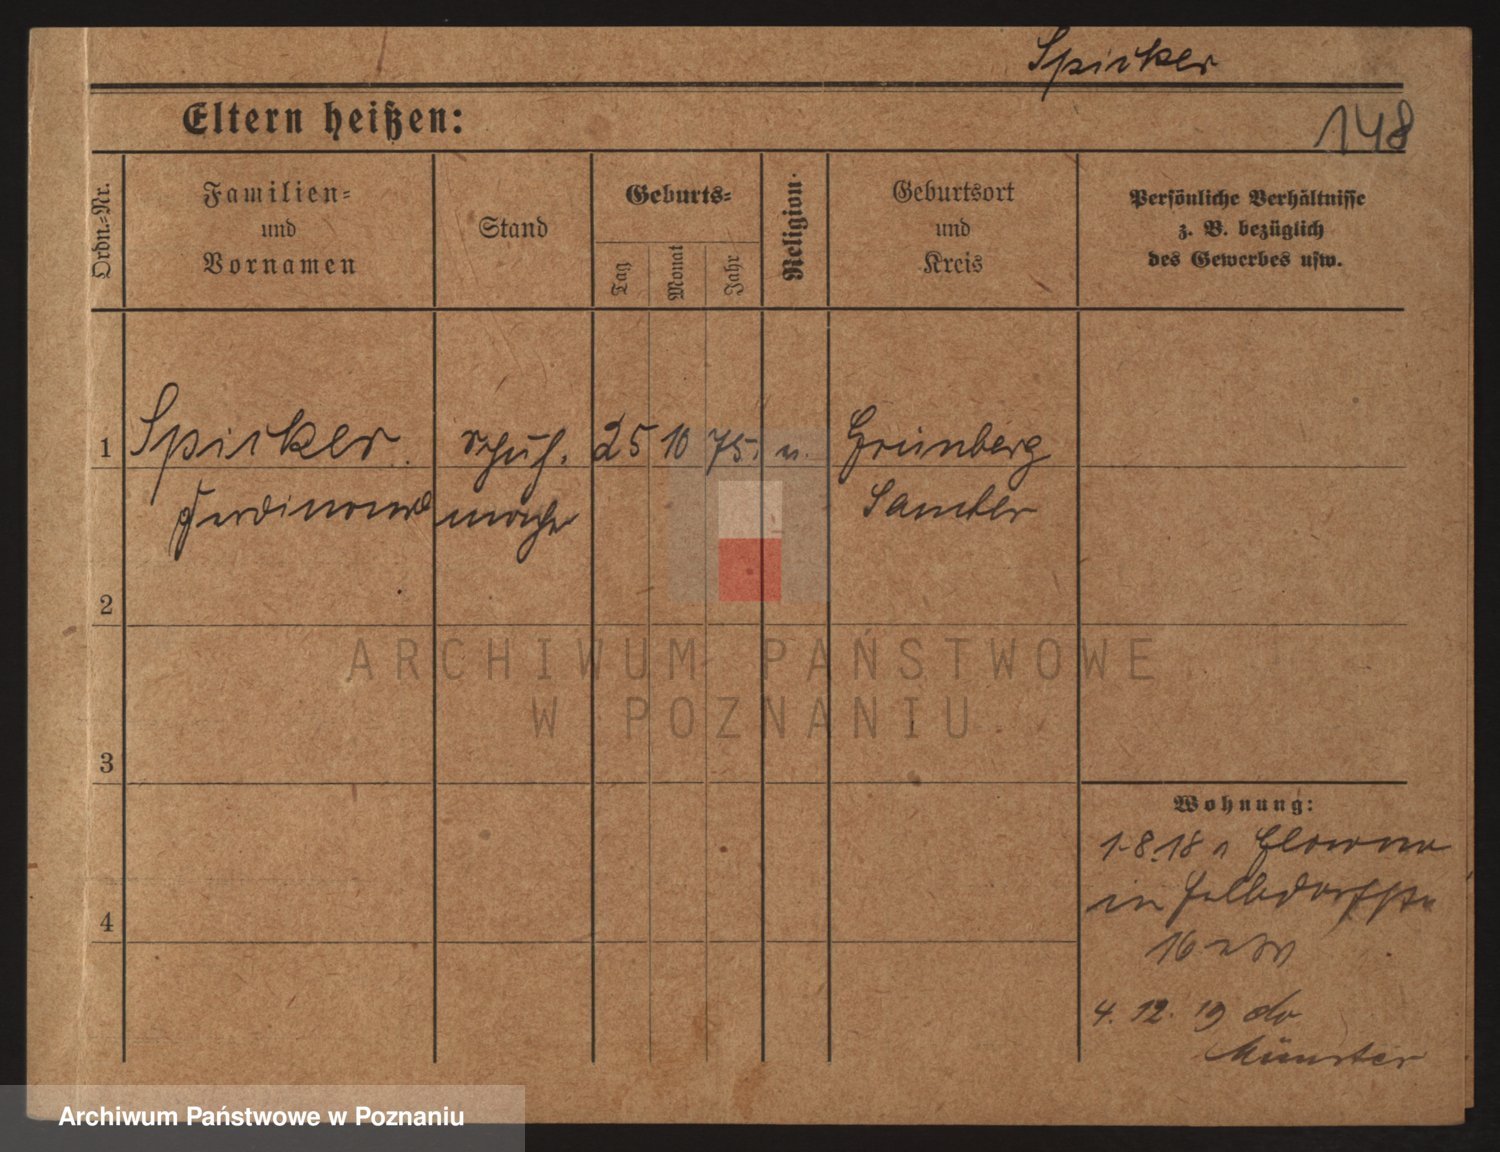 Spicker
148
Eltern heißen:
Ordn.-Nr.
Familien-
und
Vornamen
Stand
Geburts-
Tag
Monat
Jahr
Religion.
Geburtsort
und
Kreis
Persönliche Verhältnisse
z. B. bezüglich
des Gewerbes usw.
1 Spicker Schuh. 25 10 75. Grünberg
Ferdinand macher Samter
2
3
4
Wohnung:
1.8.18 Glowno
in
16
4. 12. 19
Münster
ARCHIWUM PAŃSTWOWE
W POZNANIU
Archiwum Państwowe w Poznaniu